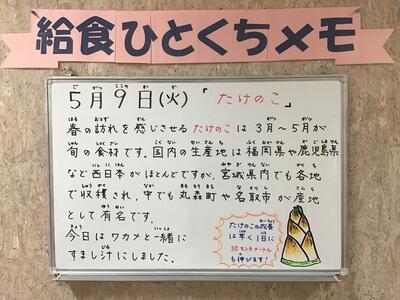 給食ひとくちメモ
5月9日(火) 「たけのこ」
春の訪れを感じさせる たけのこ は 3月〜5月が
旬の食材です。国内の生産地は福岡県や鹿児島県
など西日本がほとんどですが、宮城県内でも各地
で収穫され、中でも丸森町や名取市が産地
として有名です。
今日はワカメと一緒に
すまし汁にしました。
たけのこの成長
は早く1日に
30センチメートル
も伸びます!